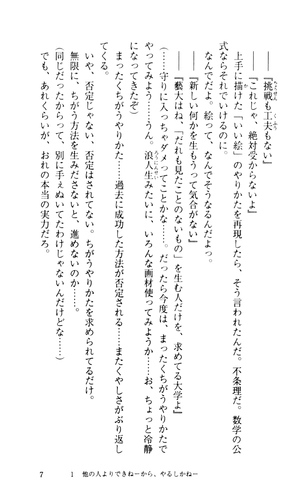 ――『挑戦も工夫もない』
――『これじゃ、絶対受からないよ』
上手に描けた「いい絵」のやりかたを再現したら、そう言われたんだ。不条理だ。数学の公
式ならそれでいけるのに。
なんでだよ。絵って、なんでそうなるんだよっ。
――『新しい何かを生もうって気合がない』
――『藝大はね、「だれも見たことのないもの」を生む人だけを、求めてる大学よ』
（……守りに入っちゃダメってことかな……。だったら今度は、まったくちがうやりかたで
やってみよう……うん。浪人生みたいに、いろんな画材使ってみようか……お、ちょっと冷静
になってきたぞ）
まったくちがうやりかた……過去に成功した方法が否定される……またくやしさがぶり返し
てくる。
いや、否定じゃない、否定はされてない。ちがうやりかたを求められてるだけ。
無限に、ちがう方法を生みださないと、進めないのか……。
（同じだったからって、別に手ぇぬいてたわけじゃないんだけどな……）
でも、あれくらいが、おれの本当の実力だろ。
7 1 他の人よりできねーから、やるしかねー